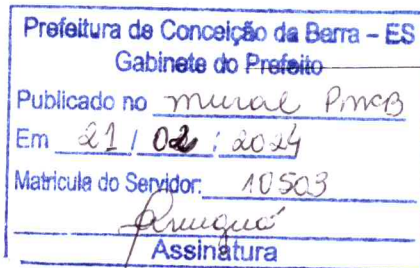 Prefeitura de Conceição da Barra – ES
Gabinete do Prefeito
Publicado no mural PMCB
Em 21 / 02 / 2024
Matricula do Servidor: 10503
Assinatura